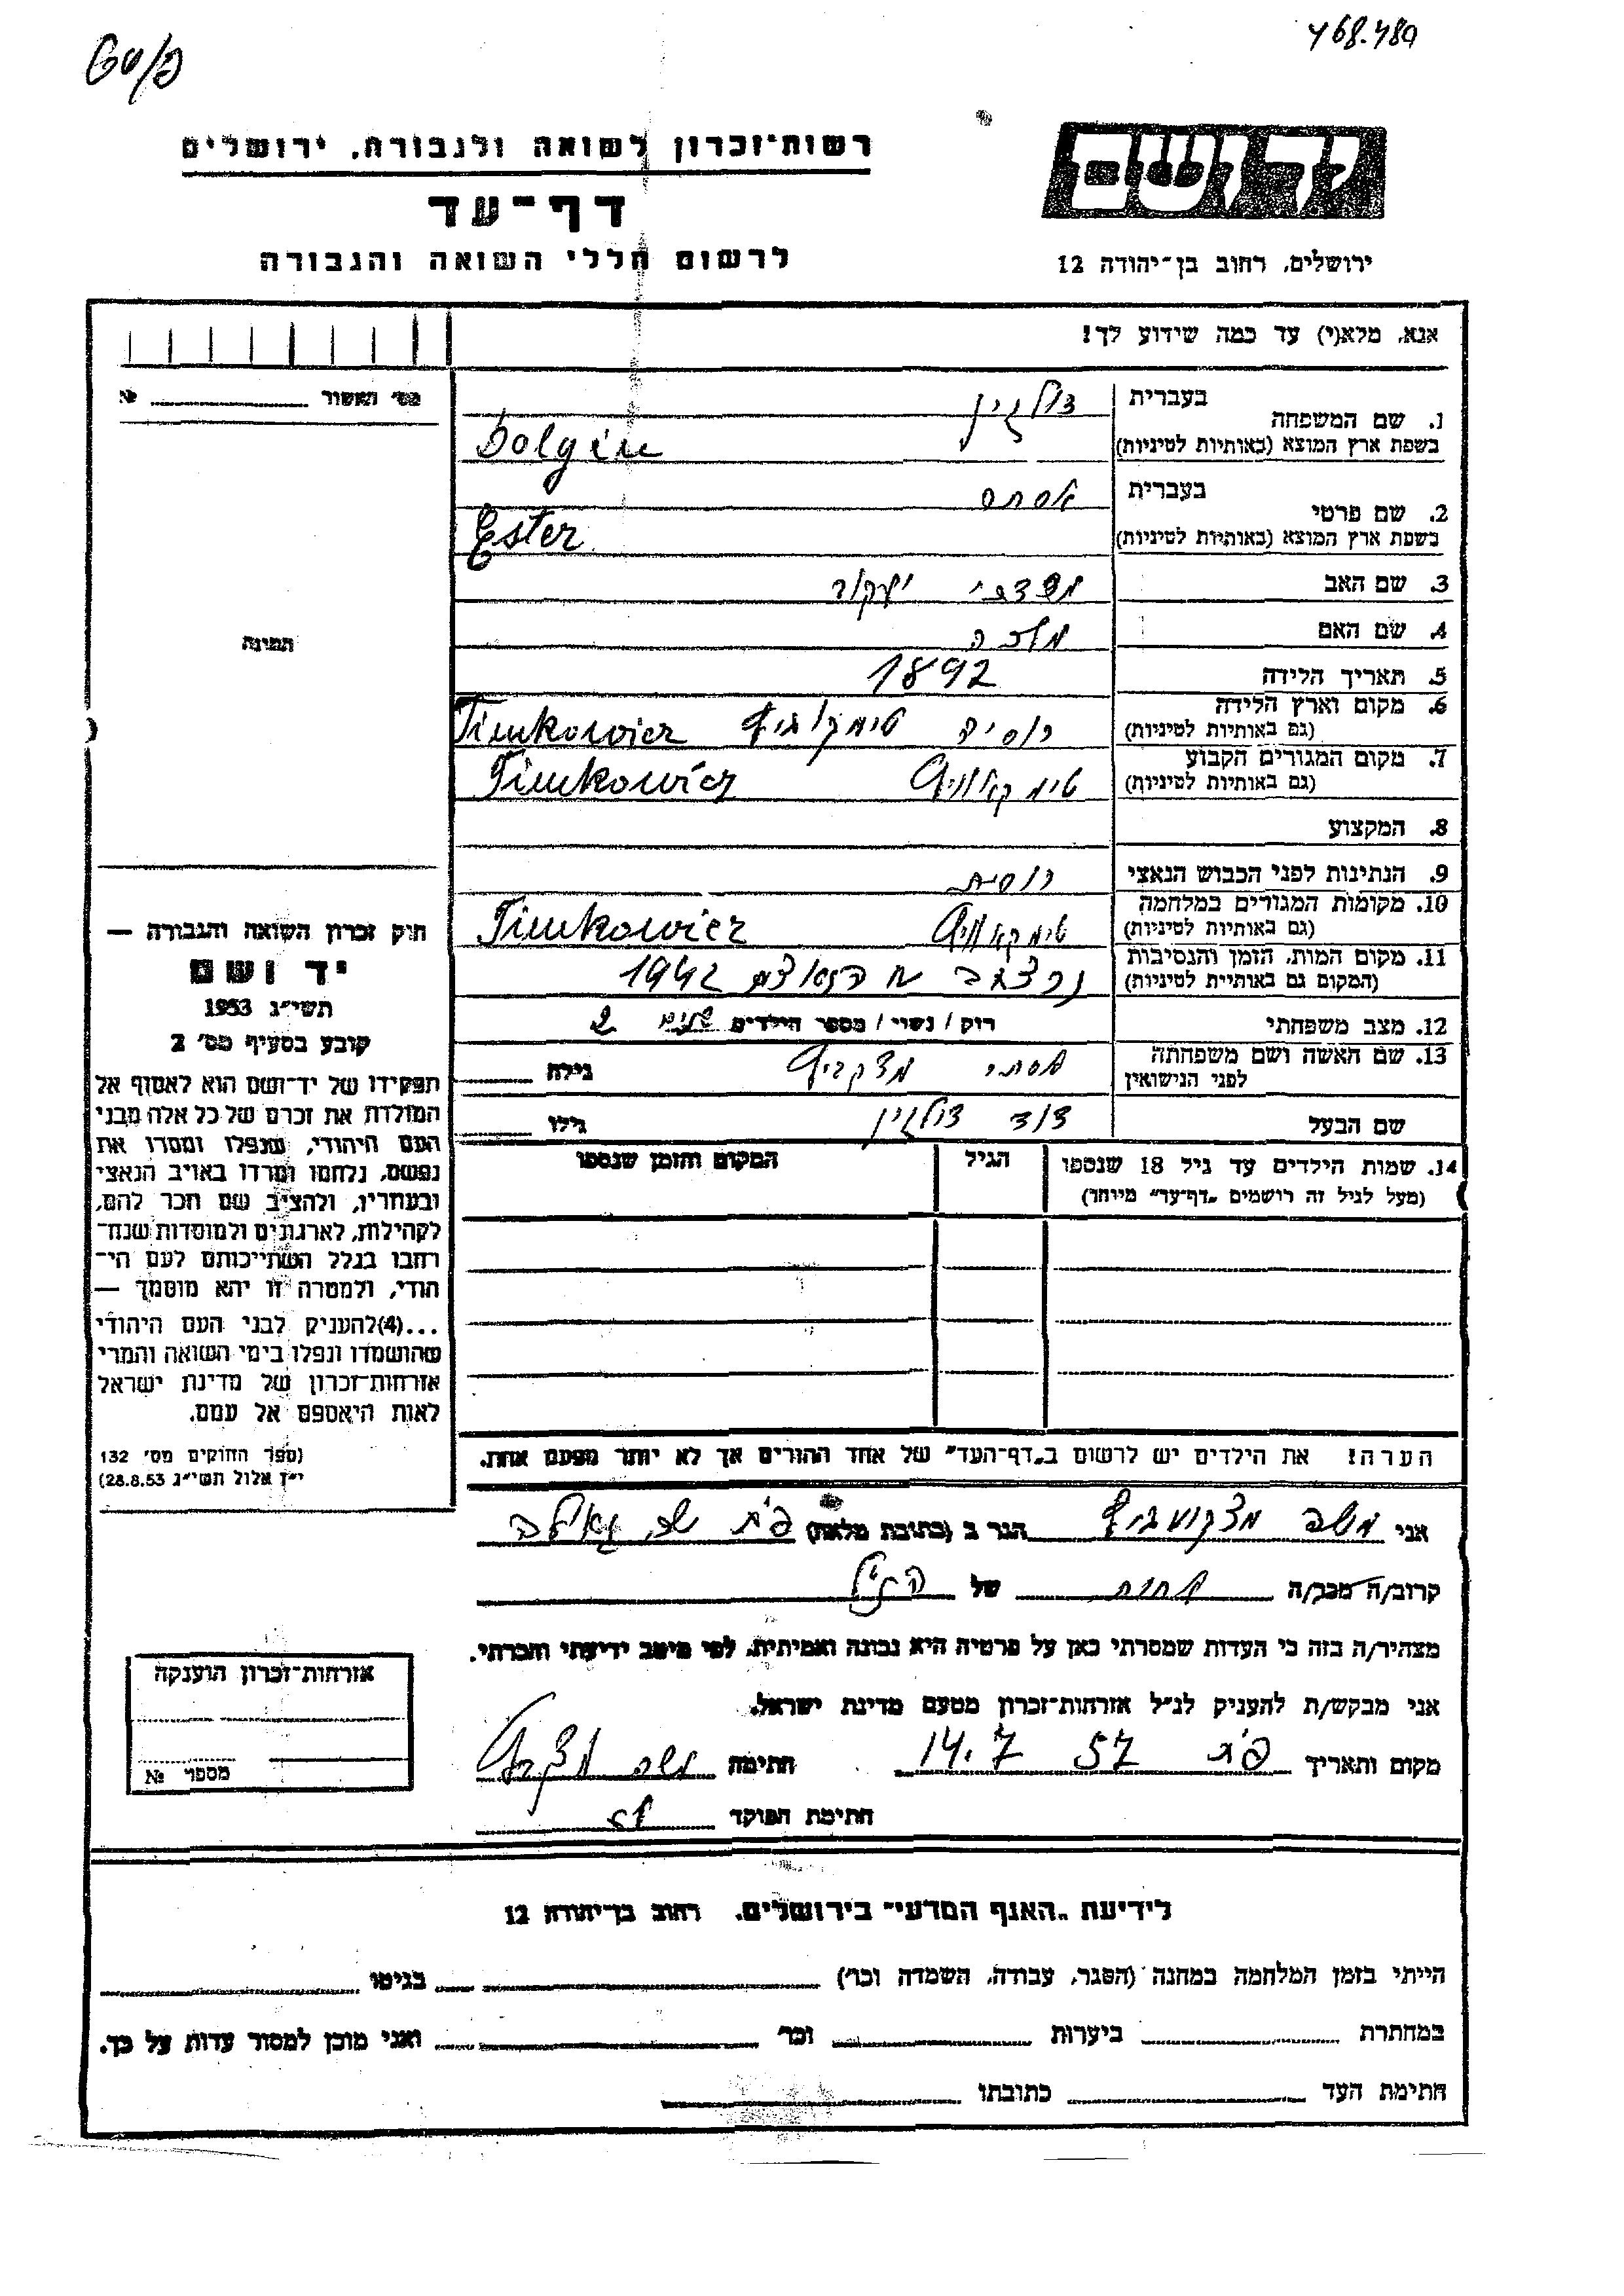 468.489
יד ושם
ירושלים, רחוב בן־יהודה 12
רשות־זכרון לשואה ולגבורה, ירושלים
דף־עד
לרשום חללי השואה והגבורה
אנא, מלא(י) עד כמה שידוע לך!
מס' האשור № 
1. שם המשפחה
בעברית דולגין
בשפת ארץ המוצא (באותיות לטיניות) Dolgin
2. שם פרטי
בעברית אסתר
בשפת ארץ המוצא (באותיות לטיניות) Ester
3. שם האב יעקב
4. שם האם
5. תאריך הלידה 1892
6. מקום וארץ הלידה רוסיה
(גם באותיות לטיניות) Timkowicz
7. מקום המגורים הקבוע
(גם באותיות לטיניות) Timkowicz
8. המקצוע
9. הנתינות לפני הכבוש הנאצי רוסית
10. מקומות המגורים במלחמה
(גם באותיות לטיניות) Timkowicz
11. מקום המות, הזמן והנסיבות 1942
(המקום גם באותיית לטיניות)
12. מצב משפחתי רוק / נשוי / מספר הילדים 2
13. שם האשה ושם משפחתה
לפני הנישואין אסתר גילה
שם הבעל דוד דולגין גילו
14. שמות הילדים עד גיל 18 שנספו הגיל המקום והזמן שנספו
(מעל לגיל זה רושמים „דף־עד" מיוחד)
הערה! את הילדים יש לרשום ב„דף־העד" של אחד ההורים אך לא יותר מפעם אחת.
תמונה
חוק זכרון השואה והגבורה —
יד ושם
תשי״ג 1953
קובע בסעיף מס' 2
תפקידו של יד־ושם הוא לאסוף אל
המולדת את זכרם של כל אלה מבני
העם היהודי, שנפלו ומסרו את
נפשם, נלחמו ומרדו באויב הנאצי
ובעוזריו, ולהציב שם וזכר להם,
לקהילות, לארגונים ולמוסדות שנח־
רבו בגלל השתייכותם לעם הי־
הודי, ולמטרה זו יהא מוסמך —
...(4)להעניק לבני העם היהודי
שהושמדו ונפלו בימי השואה והמרי
אזרחות־זכרון של מדינת ישראל
לאות היאספם אל עמם.
(ספר החוקים מס' 132
י״ז אלול תשי״ג 28.8.53)
אני הגר ב (כתובת מלאה) פ״ת
קרוב/ה מכר/ה אחות של הנ״ל
מצהיר/ה בזה כי העדות שמסרתי כאן על פרטיה היא נכונה ואמיתית, לפי מיטב ידיעתי והכרתי.
אני מבקש/ת להעניק לנ״ל אזרחות־זכרון מטעם מדינת ישראל.
מקום ותאריך פ״ת 14.7 57 חתימה
חתימת הפוקד
אזרחות־זכרון הוענקה
מספר №
לידיעת „האגף המדעי" בירושלים, רחוב בן־יהודה 12
הייתי בזמן המלחמה במחנה (הסגר, עבודה, השמדה וכו') בגיטו
במחתרת ביערות וכו' ואני מוכן למסור עדות על כך.
חתימת העד כתובתו